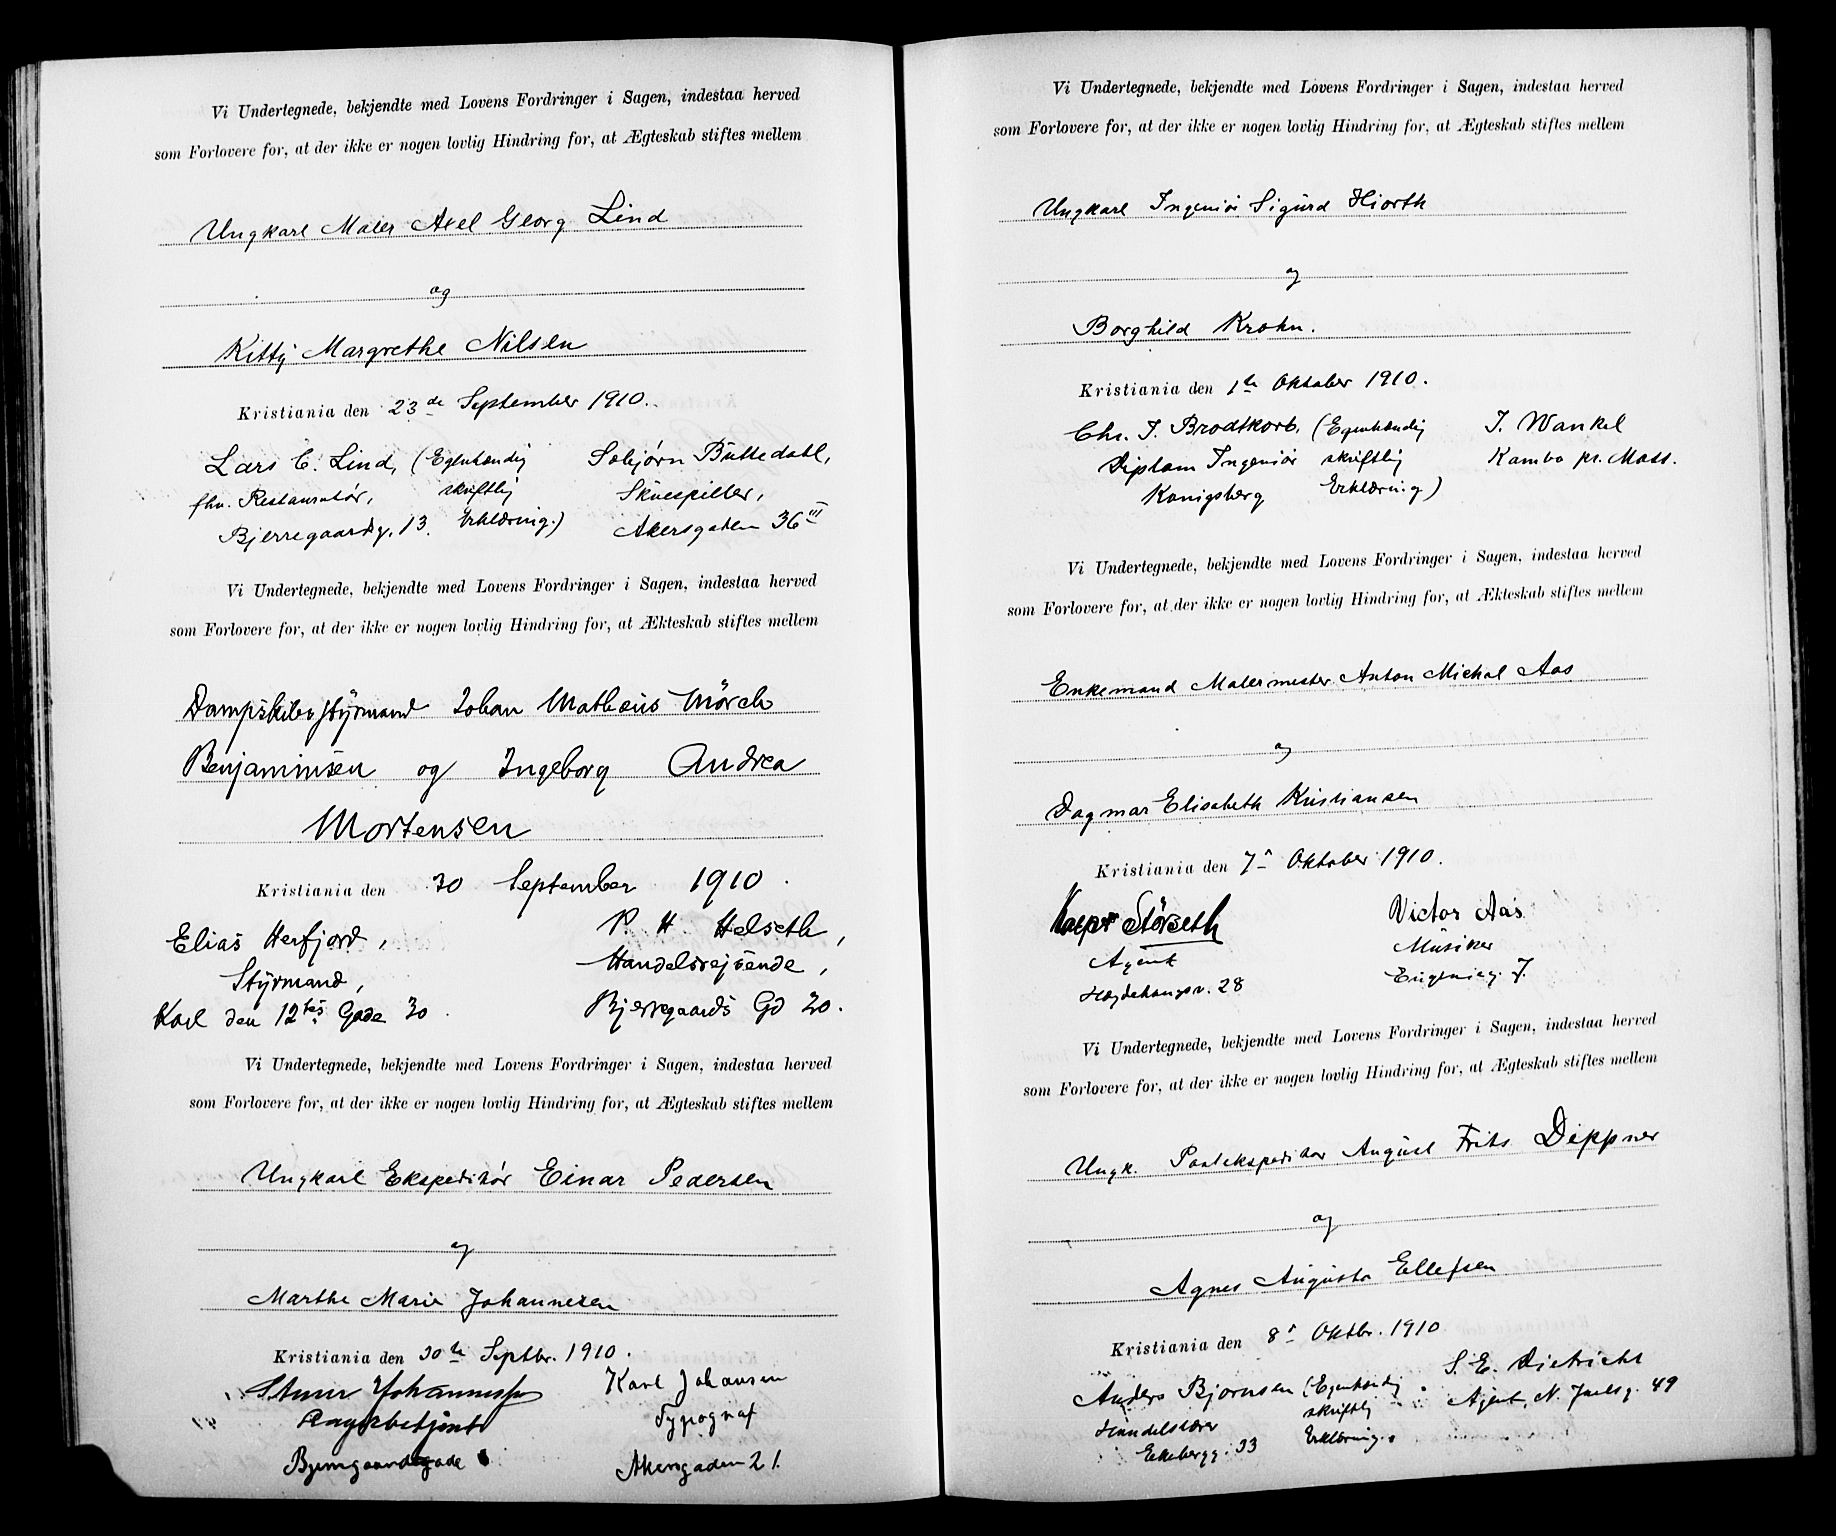 Vi Undertegnede, bekjendte med Lovens Fordringer i Sagen, indestaa herved
som Forlovere for, at der ikke er nogen lovlig Hindring for, at Ægteskab stiftes mellem
Ungkarl Maler Axel Georg Lind
og
Kitty Margrethe Nilsen
Kristiania den 23de September 1910.
Lars C. Lind, (Egenhændig
fhv. Restauratør, skriftlig
Bjerregaardsg. 13. Erklæring.)
Sobjørn Buttedahl,
Skuespiller,
Akersgaden 36III
Vi Undertegnede, bekjendte med Lovens Fordringer i Sagen, indestaa herved
som Forlovere for, at der ikke er nogen lovlig Hindring for, at Ækteskab stiftes mellem
Dampskibsstyrmand Johan Mathæus Mörch
Benjaminsen og Ingeborg Andrea
Mortensen
Kristiania den 30 September 1910.
Elias Herfjord,
Styrmand,
Karl den 12tes Gade 30.
P. H. Helseth,
Handelsrejsende,
Bjerregaards Gd 20.
Vi Undertegnede, bekjendte med Lovens Fordringer i Sagen, indestaa herved
som Forlovere for, at der ikke er nogen lovlig Hindring for, at Ægteskab stiftes mellem
Ungkarl Ekspeditør Einar Pedersen
og
Marthe Marie Johannesen
Kristiania den 30te Septbr. 1910.
Johannessen
Bjerregaardsgade
Karl Johansen
Typograf
Akersgaden 21.
Vi Undertegnede, bekjendte med Lovens Fordringer i Sagen, indestaa herved
som Forlovere for, at der ikke er nogen lovlig Hindring for, at Ægteskab stiftes mellem
Ungkarl Ingeniør Sigurd Hiorth
og
Borghild Krohn.
Kristiania den 1te Oktober 1910.
Chr. T. Brodtkorb, (Egenhændig
Diplom Ingeniør skriftlig
Konigsberg Erklæring)
J. Wankel
Kambo pr. Moss.
Vi Undertegnede, bekjendte med Lovens Fordringer i Sagen, indestaa herved
som Forlovere for, at der ikke er nogen lovlig Hindring for, at Ækteskab stiftes mellem
Enkemand Malermester Anton Michal Aas
og
Dagmar Elisabeth Kristiansen
Kristiania den 7de Oktober 1910.
Kasper Störseth
Agent
Hegdehaugsv. 28
Victor Aas
Musiker
Eugenieg. 7.
Vi Undertegnede, bekjendte med Lovens Fordringer i Sagen, indestaa herved
som Forlovere for, at der ikke er nogen lovlig Hindring for, at Ægteskab stiftes mellem
Ungk. Postekspeditør August Frits Dippner
og
Agnes Augusta Ellefsen
Kristiania den 8de Oktbr. 1910
Anders Bjørnsen (Egenhændig
Handelslærer skriftlig
Ekebergg. 33 Erklæring.
S. E. Dietrichs
Agent, N. Juelsg. 49